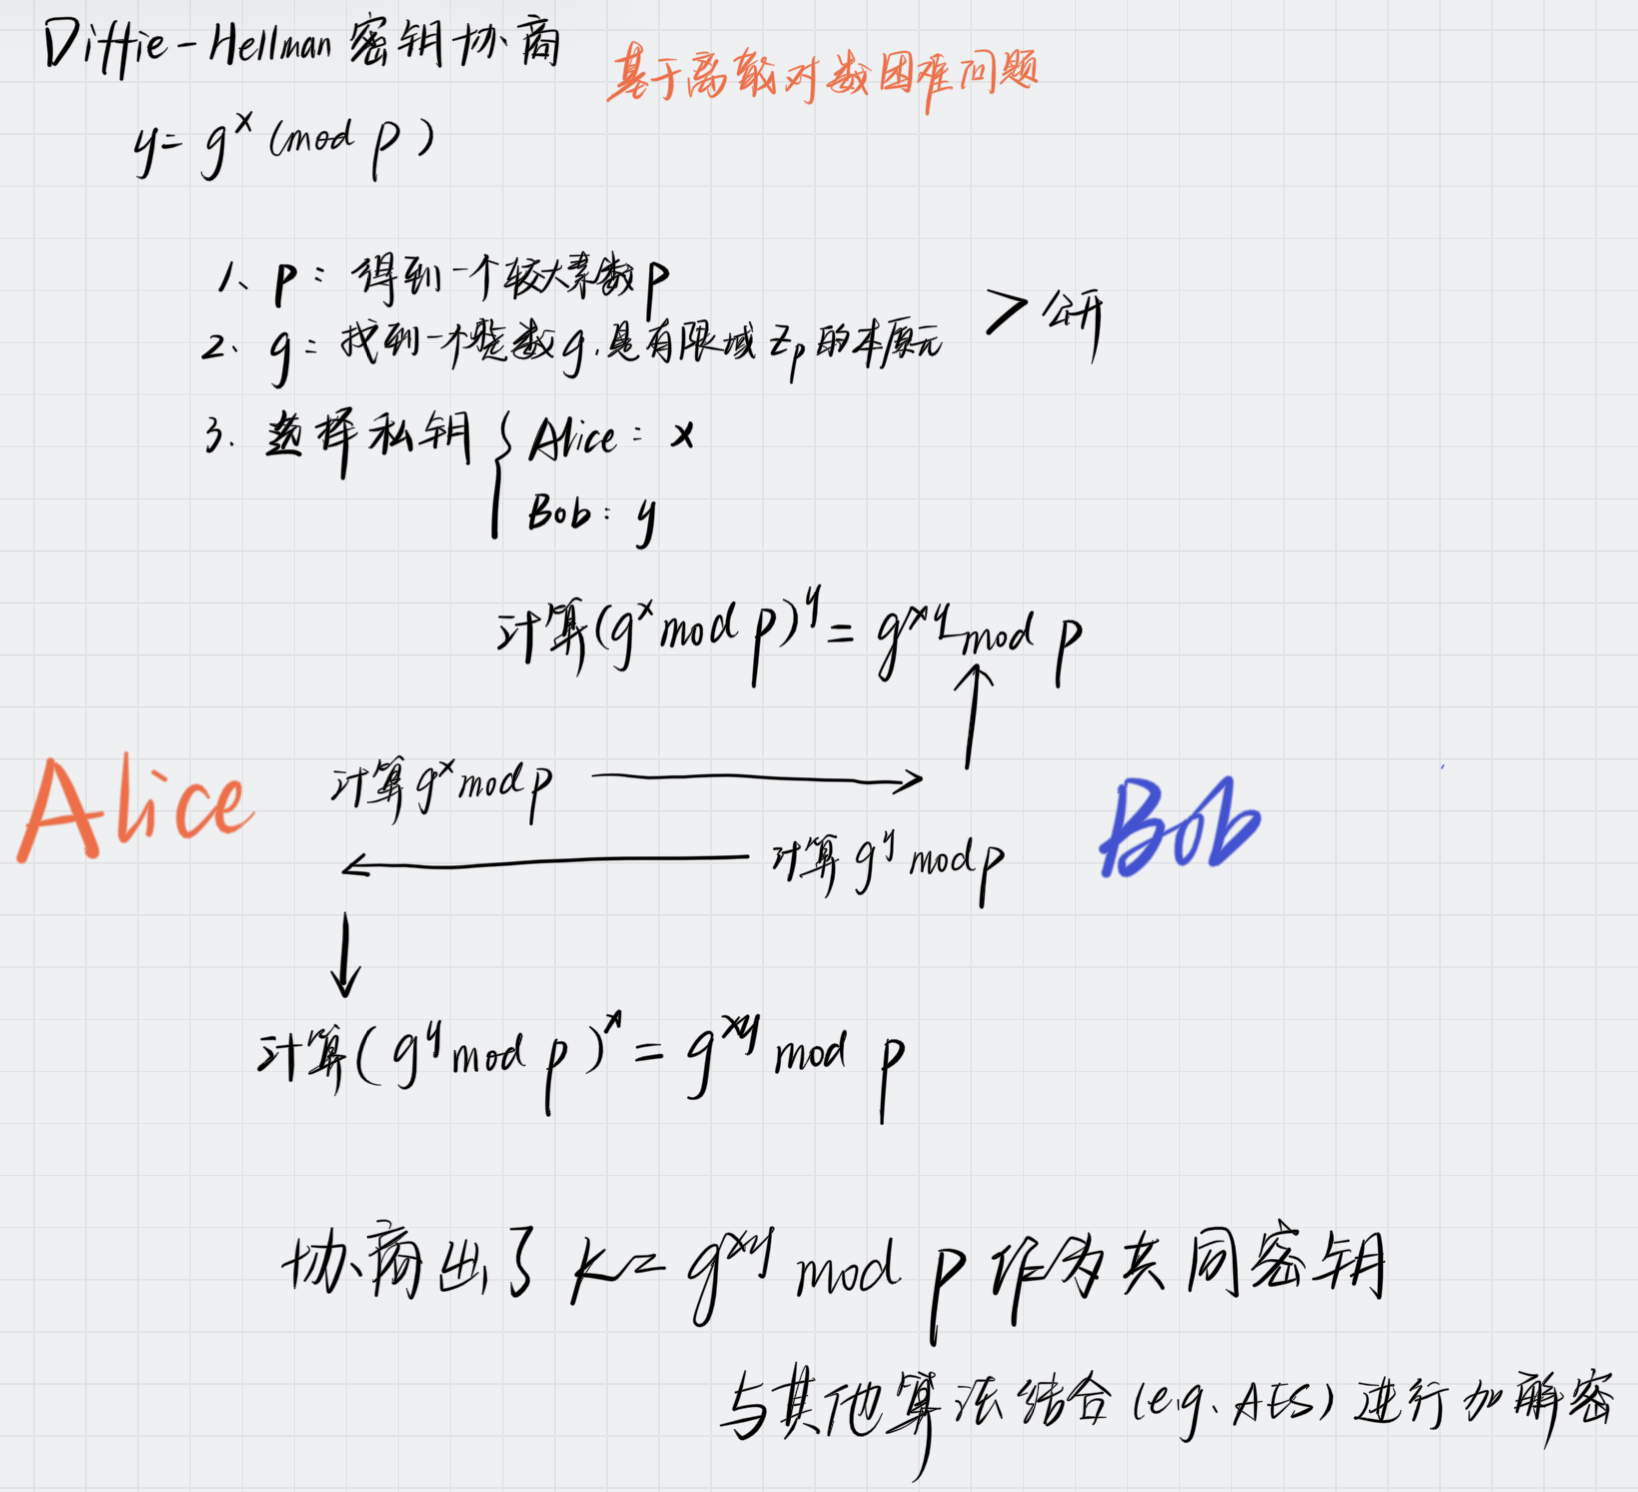 Diffie-Hellman 密钥协商
基于离散对数困难问题
y = g^x (mod p)
1、p：得到一个较大素数p
2、g：找到一个整数g，是有限域 Z_p 的本原元
> 公开
3. 选择私钥 { Alice：x
Bob：y
计算(g^x mod p)^y = g^xy mod p
Alice
计算 g^x mod p
Bob
计算 g^y mod p
计算(g^y mod p)^x = g^xy mod p
协商出了 K = g^xy mod p 作为共同密钥
与其他算法结合(e.g. AES)进行加解密